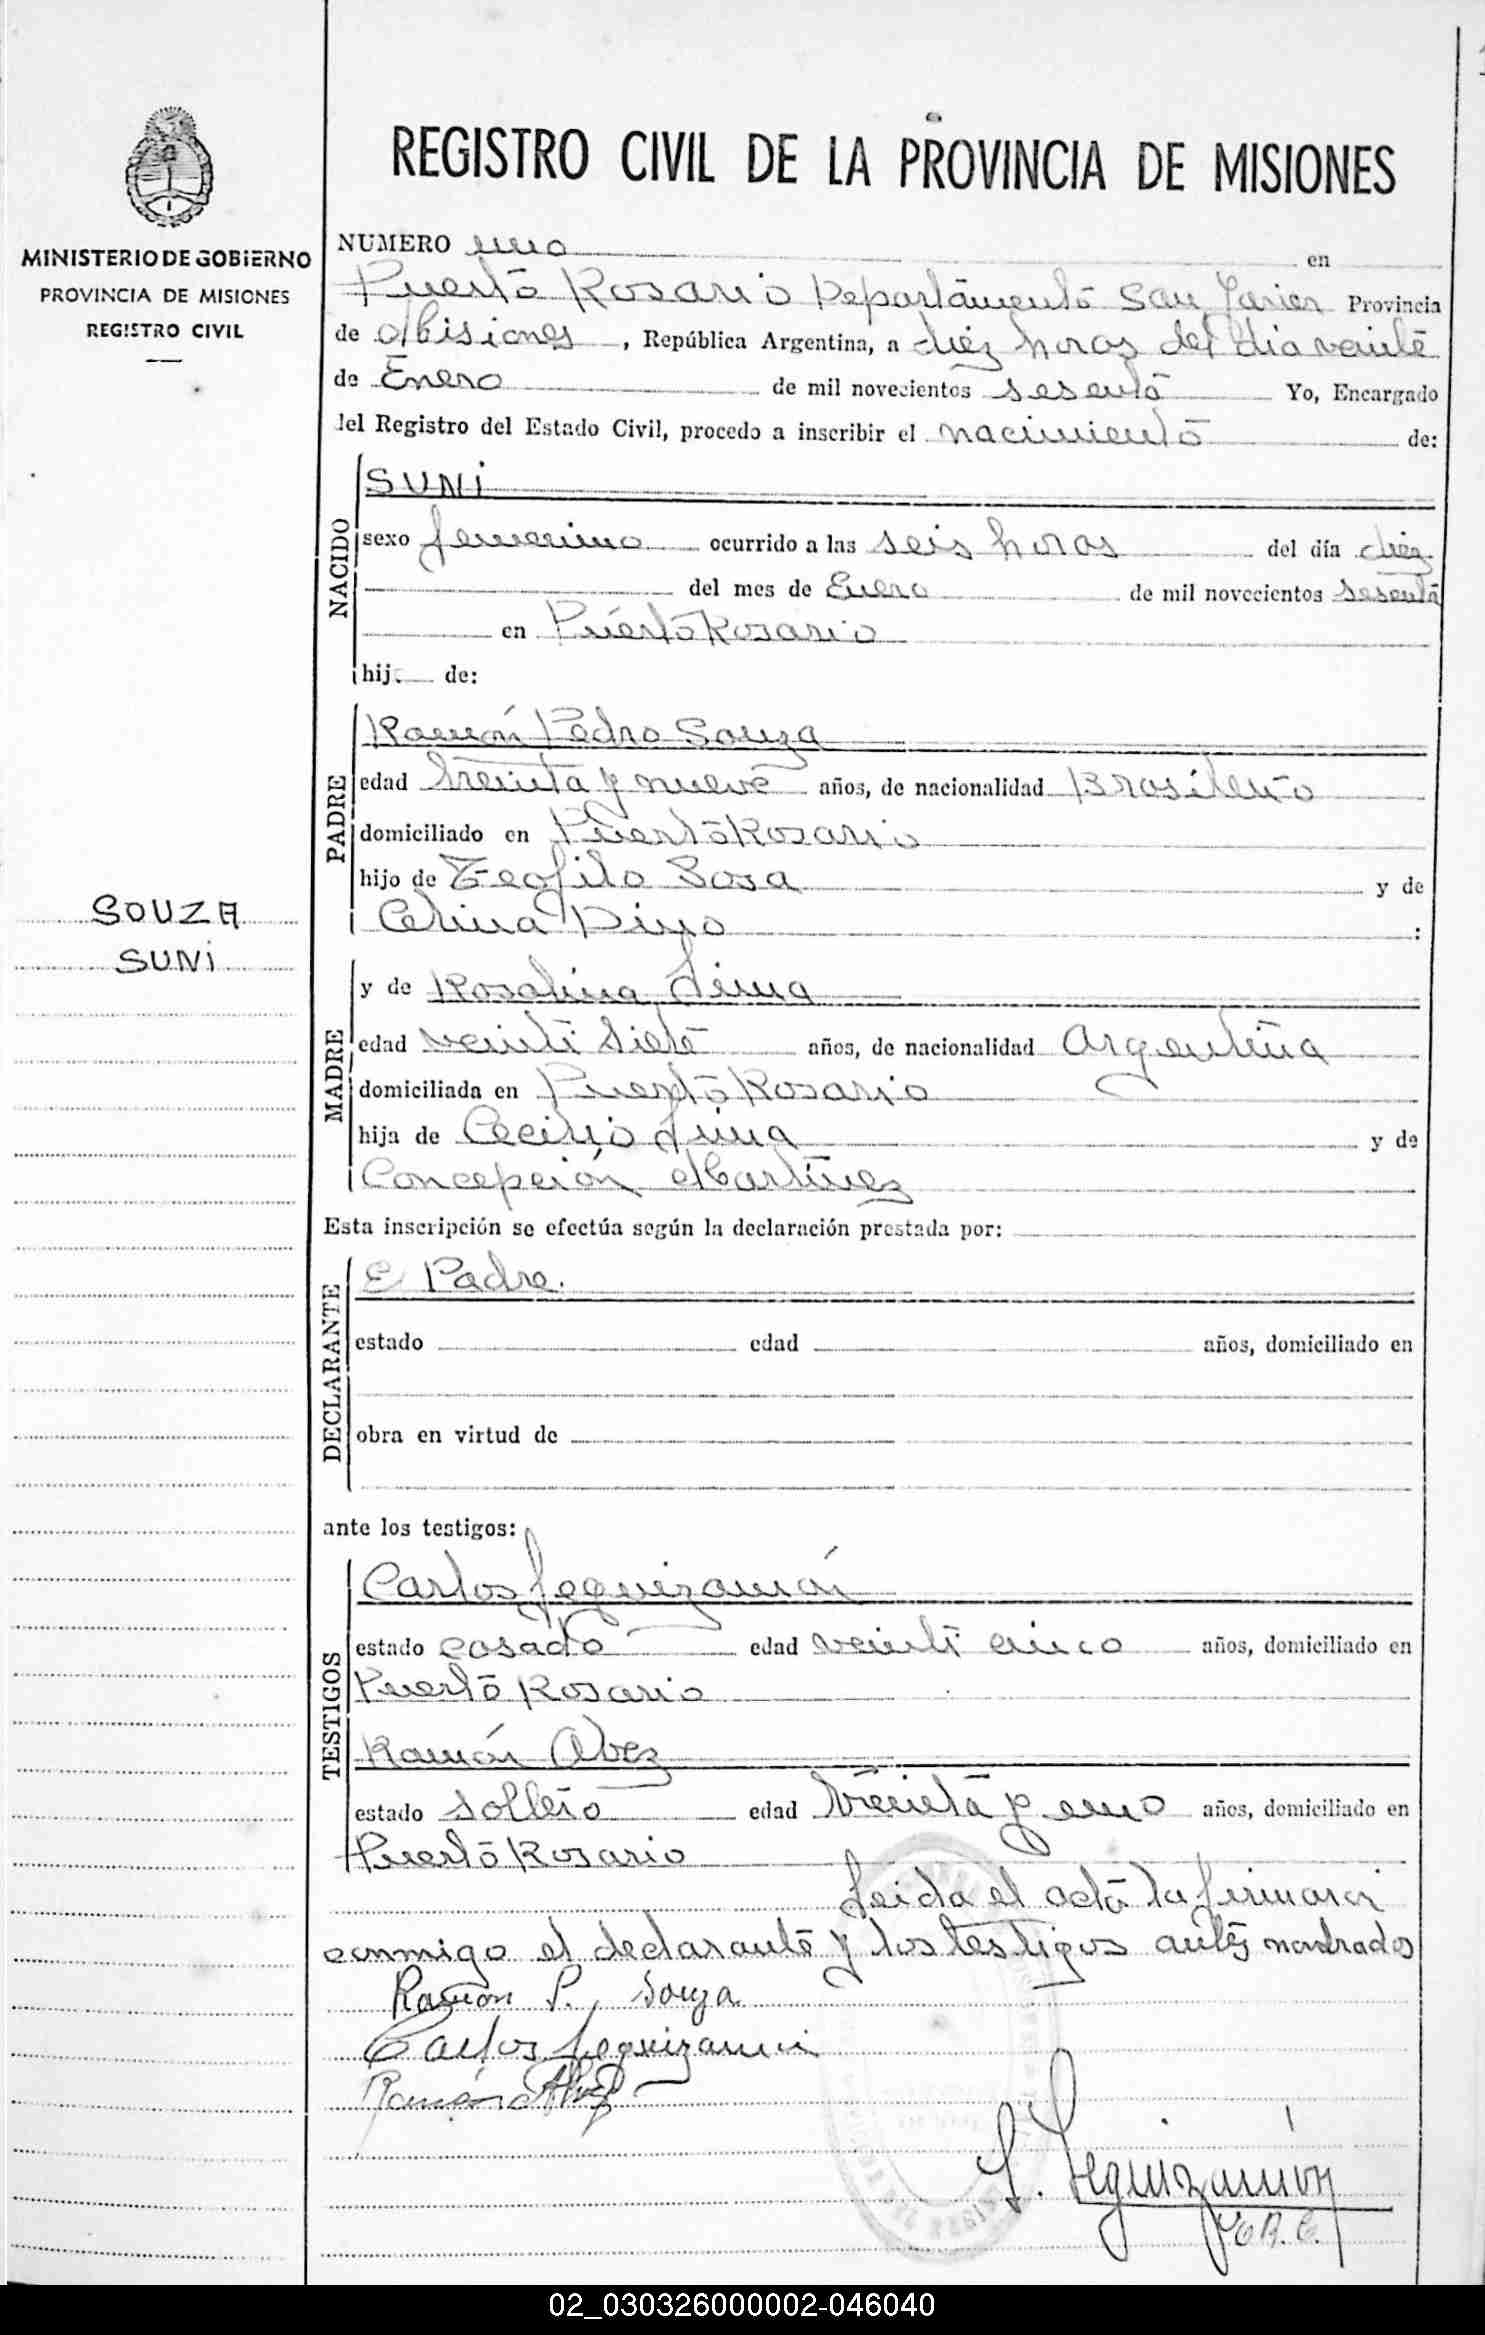 REGISTRO CIVIL DE LA PROVINCIA DE MISIONES
MINISTERIO DE GOBIERNO
PROVINCIA DE MISIONES
REGISTRO CIVIL
SOUZA
SUNI
NUMERO uno en
Puerto Rosario Departamento San Javier Provincia
de Misiones, República Argentina, a diez horas del dia veinte
de Enero de mil novecientos sesenta Yo, Encargado
del Registro del Estado Civil, procedo a inscribir el nacimiento de:
NACIDO
SUNI
sexo femenino ocurrido a las seis horas del día diez
del mes de Enero de mil novecientos sesenta
en Puerto Rosario
hij de:
PADRE
Ramón Pedro Souza
edad treinta y nueve años, de nacionalidad Brasileño
domiciliado en Puerto Rosario
hijo de Teofilo Sosa y de
Celina :
MADRE
y de Rosalina Lima
edad veinti siete años, de nacionalidad Argentina
domiciliada en Puerto Rosario
hija de Cecilio Lima y de
Concepción Martinez
Esta inscripción se efectúa según la declaración prestada por:
DECLARANTE
El Padre.
estado edad años, domiciliado en
obra en virtud de
ante los testigos:
TESTIGOS
Carlos Leguizamón
estado casado edad veinti cinco años, domiciliado en
Puerto Rosario
Ramón Alvez
estado soltero edad treinta y uno años, domiciliado en
Puerto Rosario
Leida el acta la firman
conmigo el declarante y los testigos antes nombrados
Ramon P. Souza
Carlos Leguizamon
Ramón Alvez
L. Leguizamón
02_030326000002-046040